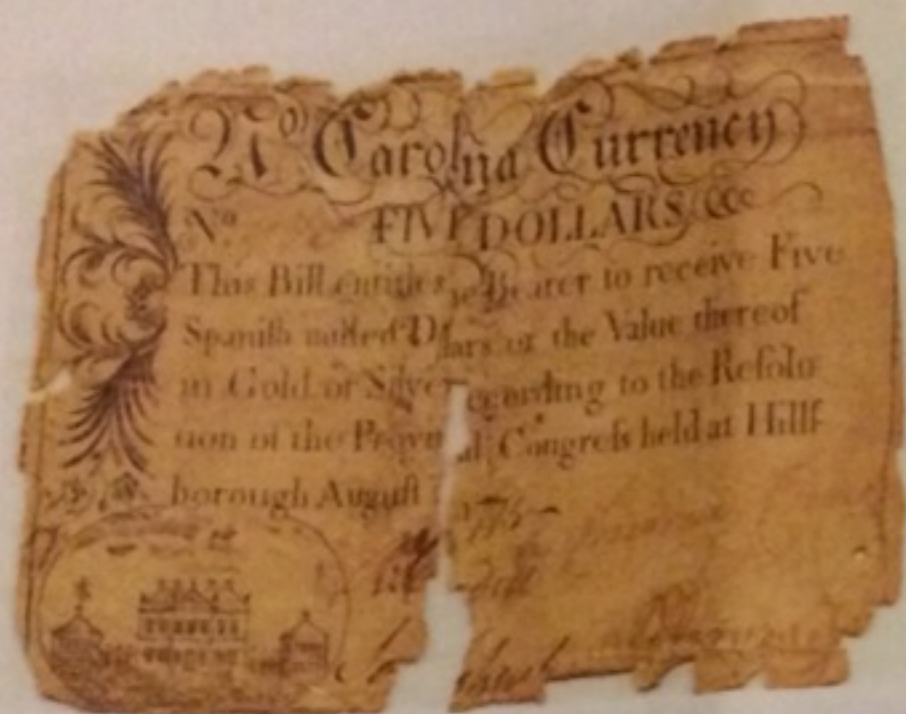 No Carolina Currency
No. FIVE DOLLARS &c
This Bill entitles ye Bearer to receive Five
Spanish milled Dollars or the Value thereof
in Gold or Silver according to the Resolu
tion of the Provincial Congress held at Hills
borough August 1775